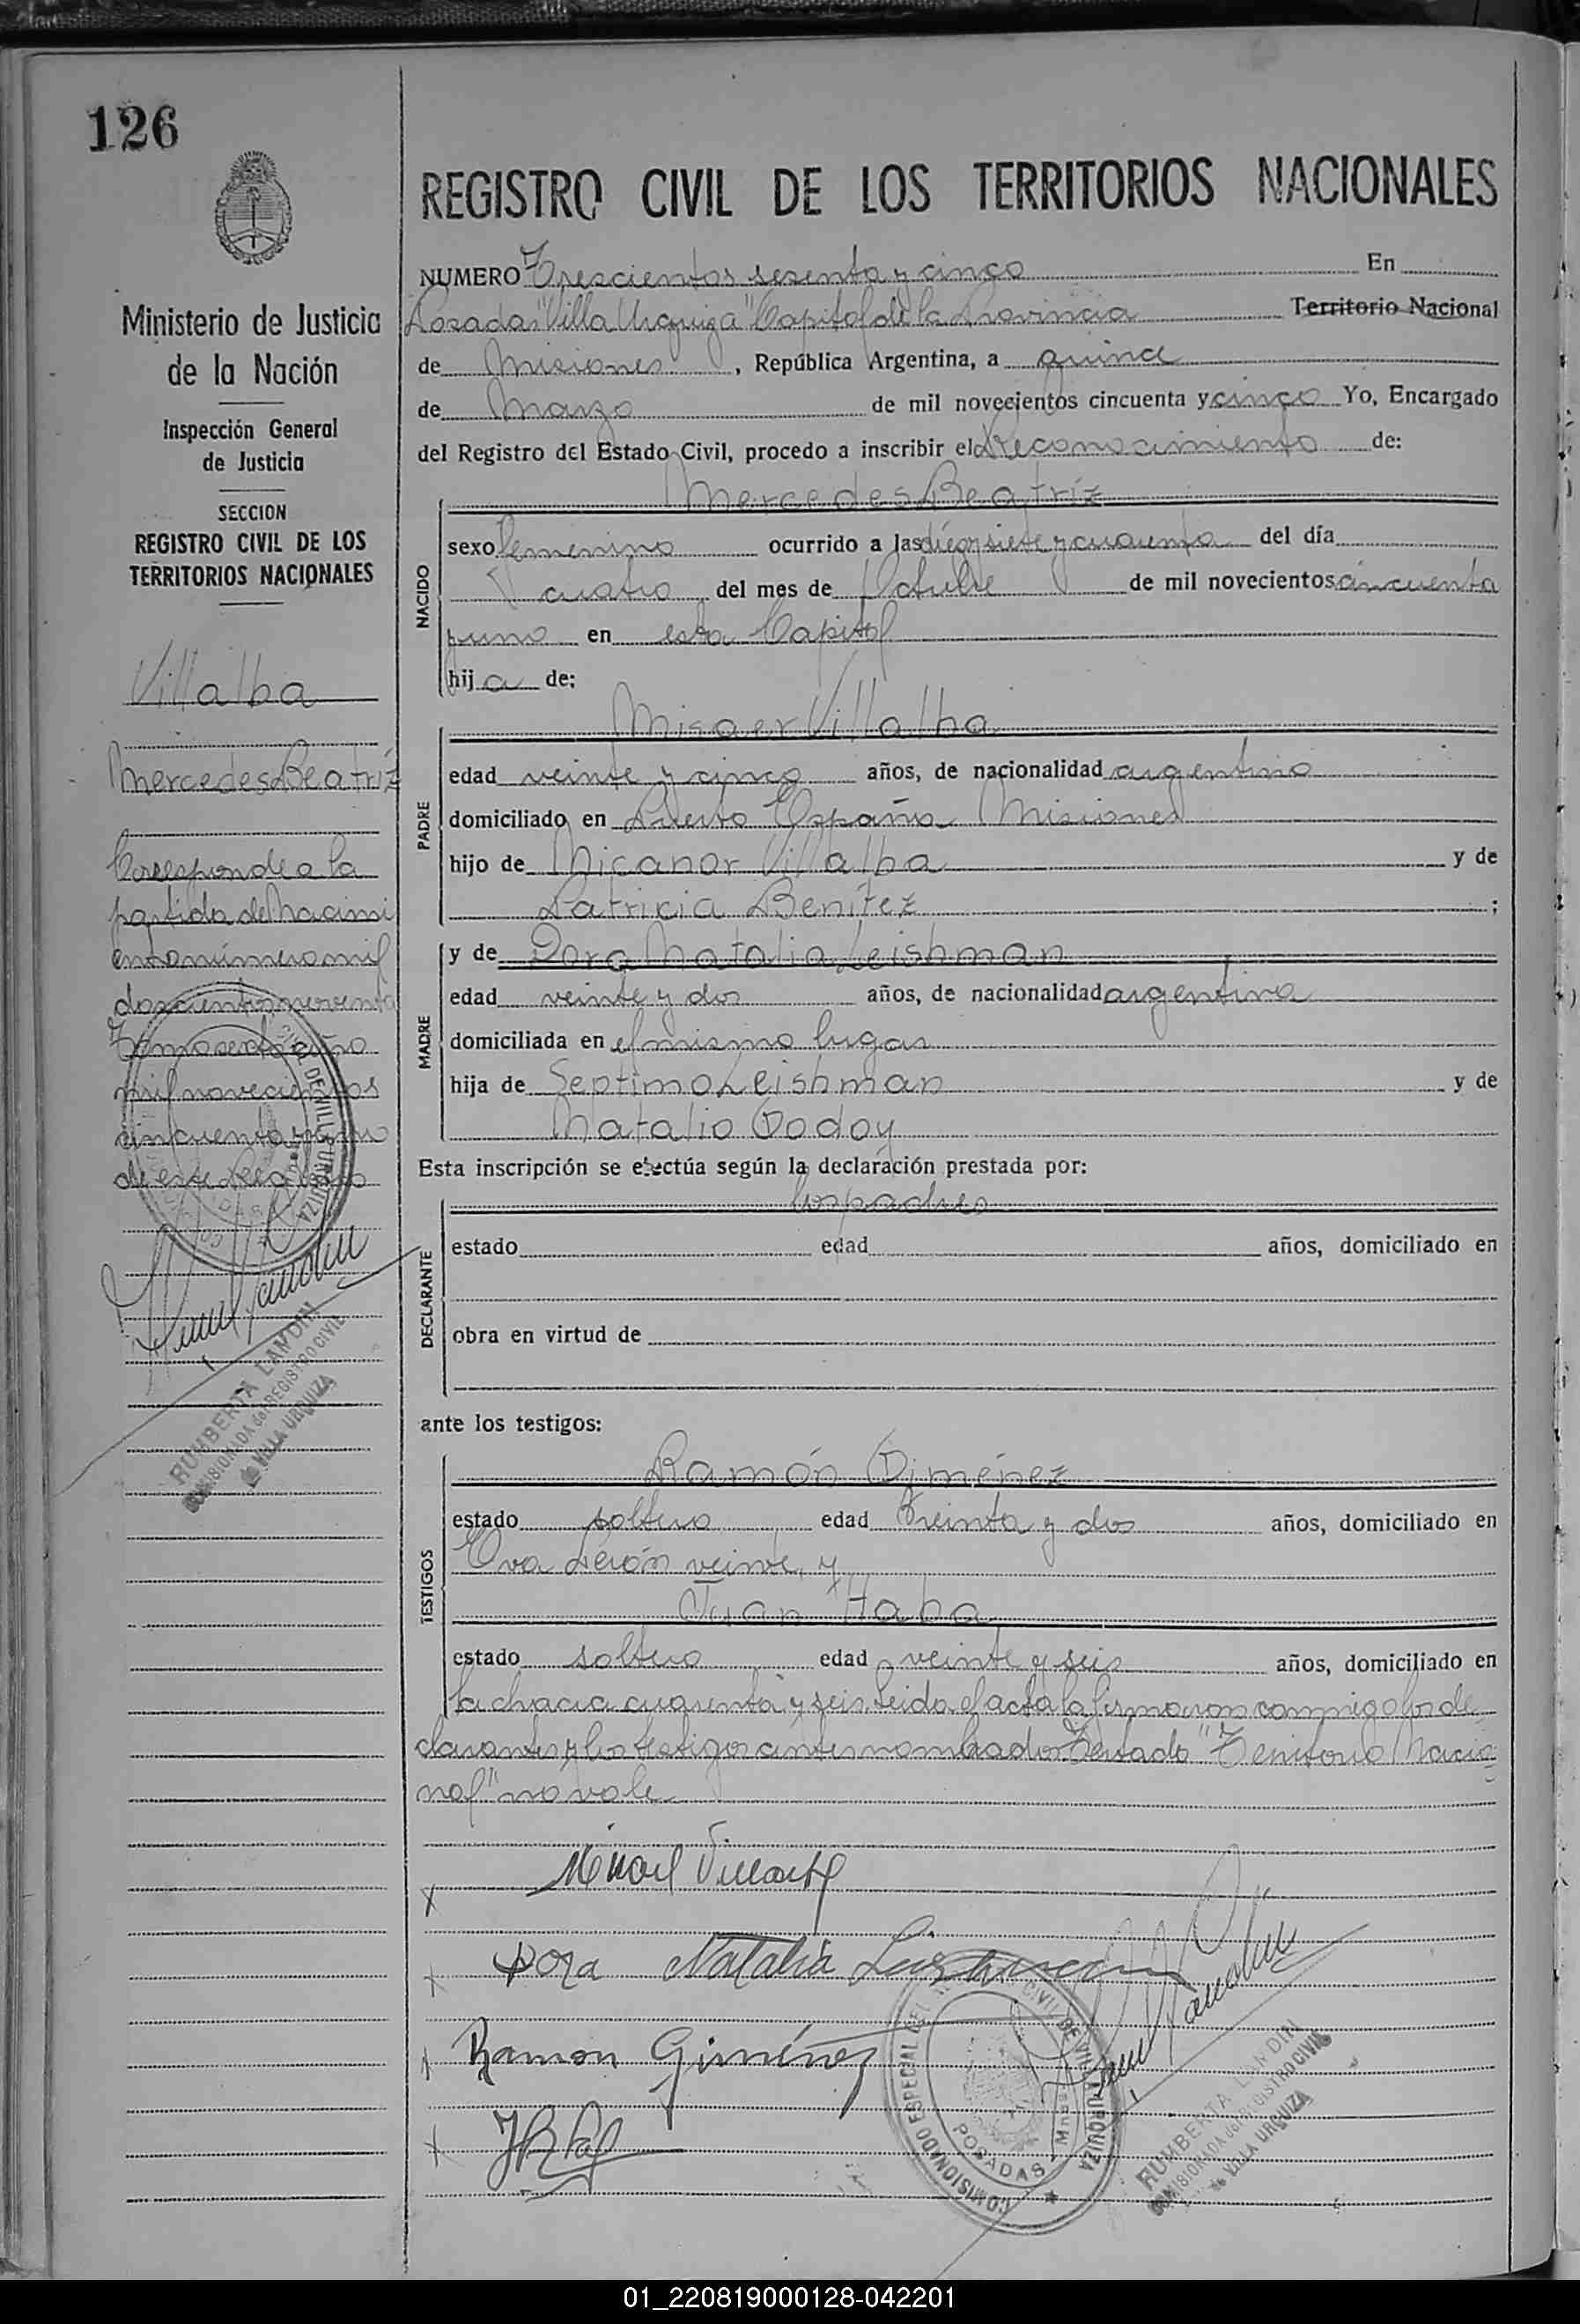 126
REGISTRO CIVIL DE LOS TERRITORIOS NACIONALES
Ministerio de Justicia
de la Nación
Inspección General
de Justicia
SECCION
REGISTRO CIVIL DE LOS
TERRITORIOS NACIONALES
Villalba
Mercedes Beatríz
Corresponde a la
partida de Nacimi
ento número mil
doscientos noventa
Tomo sexto año
mil novecientos
cincuenta y uno
de este Registro
RUMBERTA LANDIN
COMISIONADA del REGISTRO CIVIL
de VILLA URQUIZA
NUMERO Trescientos sesenta y cinco En
Posadas "Villa Urquiza" Capital de la Provincia Territorio Nacional
de Misiones, República Argentina, a quince
de Marzo de mil novecientos cincuenta y cinco Yo, Encargado
del Registro del Estado Civil, procedo a inscribir el Reconocimiento de:
Mercedes Beatríz
NACIDO
sexo femenino ocurrido a las diez y siete y cuarenta del día
cuatro del mes de Octubre de mil novecientos cincuenta
y uno en esta Capital
hija de:
PADRE
Misaer Villalba
edad veinte y cinco años, de nacionalidad argentino
domiciliado en Puerto España Misiones
hijo de Nicanor Villalba y de
Patricia Benítez ;
MADRE
y de Dora Natalia Leishman
edad veinte y dos años, de nacionalidad argentina
domiciliada en el mismo lugar
hija de Septimo Leishman y de
Natalia Godoy
Esta inscripción se efectúa según la declaración prestada por:
los padres
DECLARANTE
estado edad años, domiciliado en
obra en virtud de
ante los testigos:
TESTIGOS
Ramón Giménez
estado soltero edad treinta y dos años, domiciliado en
Eva Perón veinte, y
Juan Haba
estado soltero edad veinte y seis años, domiciliado en
la chacra cuarenta y seis. Leida el acta la firmaron conmigo los de
clarantes y los testigos antes nombrados Testado "Territorio Nacio
nal" no vale
Dora Natalia Leishman
Ramon Giménez
COMISIONADO ESPECIAL DEL CIVIL DE VILLA URQUIZA
POSADAS
RUMBERTA LANDIN
COMISIONADA del REGISTRO CIVIL
de VILLA URQUIZA
01_220819000128-042201